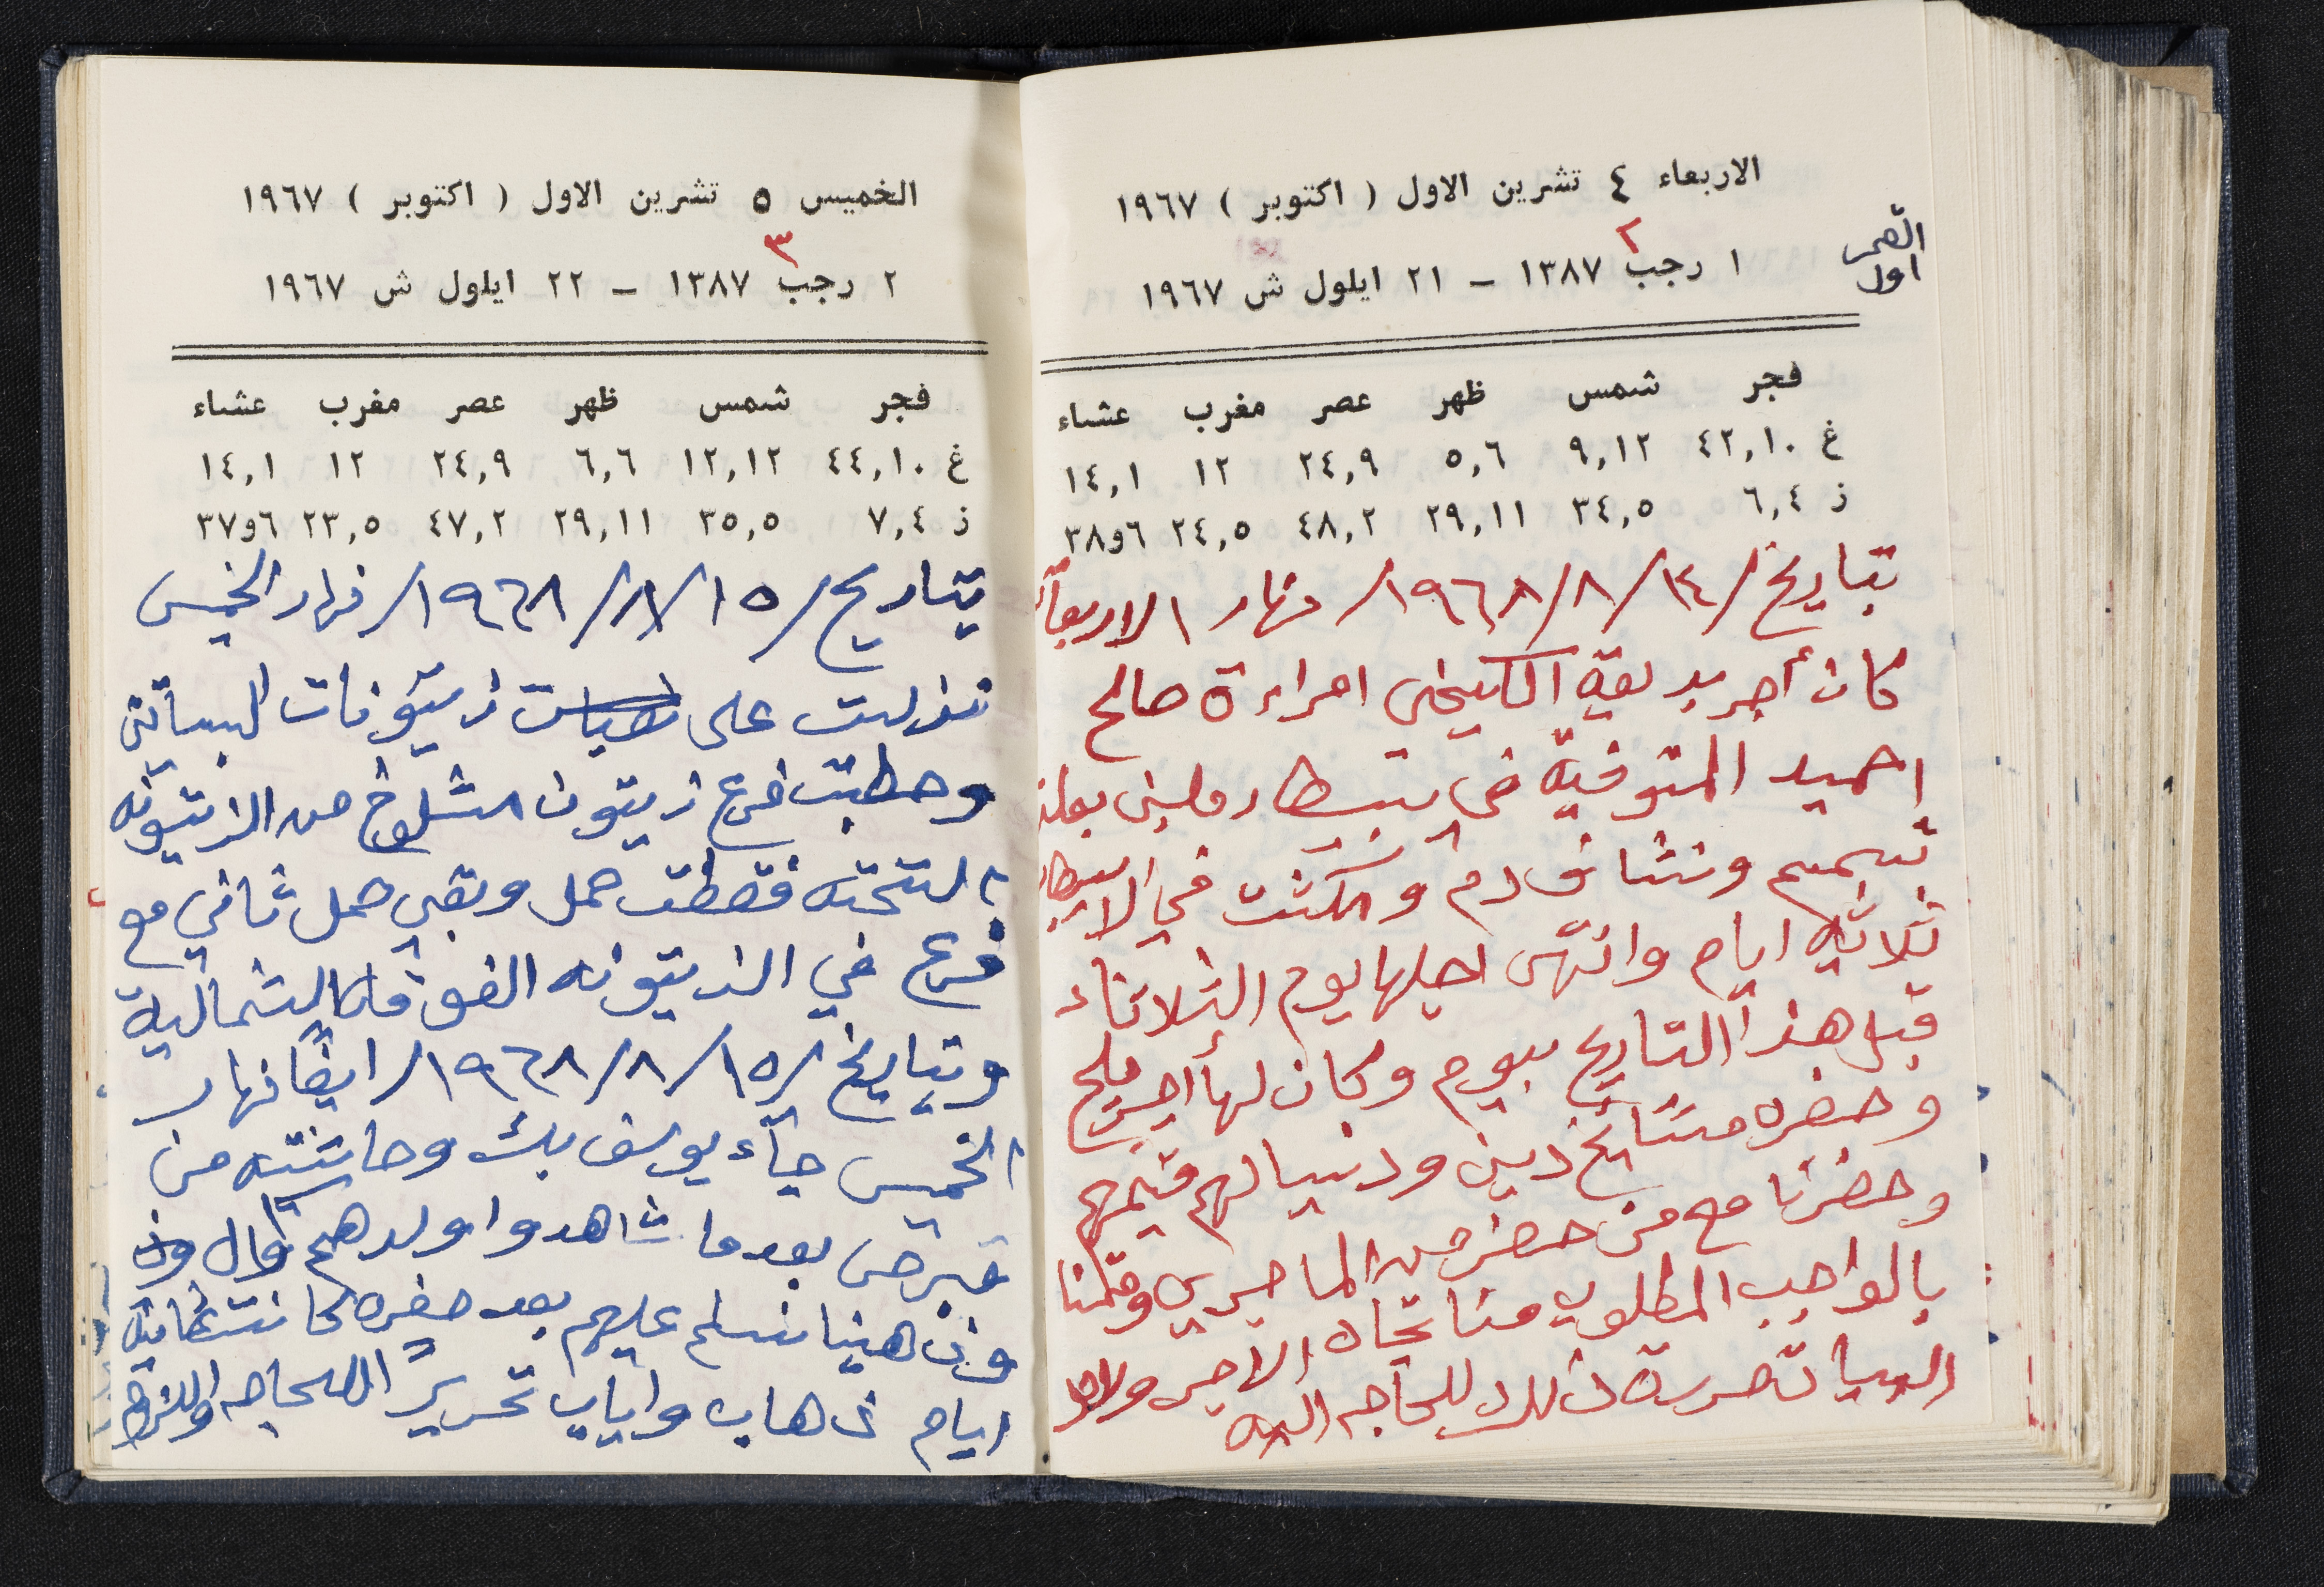 الاربعاء ٤ تشرين الاول ( اكتوبر ) ١٩٦٧
٢
١ رجب ١٣٨٧ – ٢١ ايلول ش ١٩٦٧
القمر
اول
فجر شمس ظهر عصر مغرب عشاء
غ ٤٢,١٠ ٩,١٢ ٥,٦ ٢٤,٩ ١٢ ١٤,١
ز ٦,٤ ٣٤,٥ ٢٩,١١ ٤٨,٢ ٢٤,٥ ٦و٣٨
بتاريخ /١٤/٨/١٩٦٨/ نهار الاربعآء
كان أجر بديقة الكيخي امراءة صالح
احميد المتوفية في
تسمم ونشاف دم ومكثت في
ثلاثة ايام وانتهى اجلها يوم الثلاثاء
قبل هذا التاريخ بيوم وكان لها أجر مليح
وحضره مشائخ دين ودنيا لهم قيمتهم
وحضرنا مع من حضر من الماجرين وقمنا
بالواجب المطلوب منا تجاه الاجر ولاهل
تحريرة ذلك للحاجه اليه
الخميس ٥ تشرين الاول ( اكتوبر ) ١٩٦٧
٣
٢ رجب ١٣٨٧ – ٢٢ ايلول ش ١٩٦٧
فجر شمس ظهر عصر مغرب عشاء
غ ٤٤,١٠ ١٢,١٢ ٦,٦ ٢٤,٩ ١٢ ١٤,١
ز ٧,٤ ٣٥,٥ ٢٩,١١ ٤٧,٢ ٢٣,٥ ٦و٣٧
بتاريخ /١٥/٨/١٩٦٨/ نهار الخميس
نزليت على زيتونات البساتين
وحطبت فرع زيتون مشلوخ من الزيتونه
التحته فقطت حمل وبقي حمل ثاني مع
فرع في الزيتونه الفوقا الشمالية
وبتاريخ /١٥/٨/١٩٦٨/ ايضًا نهار
الخميس جآء يوسف بك وحاشته من
قبرص بعدما شاهدوا ولدهم نوال
وذهبنا نسلم عليهم بعد حضره كانت ثمانية
ايام ذهاب واياب تحرير للحاجه واللزوم